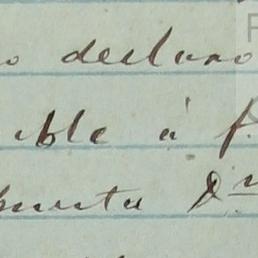 o declaro
able á f
puesta Dn